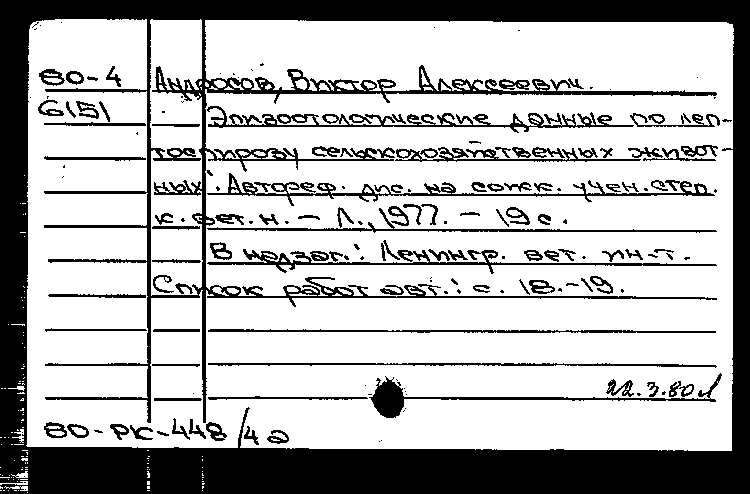 80-4 Андросов, Виктор Алексеевич.
6151 Эпизоотологические данные по леп-
тоспирозу сельскохозяйственных живот-
ных: Автореф. дис. на соиск. учен. степ.
к. вет. н. - Л., 1977. - 19 с.
В надзаг.: Ленингр. вет. ин-т.
Список работ авт.: с. 18.-19.
22.3.80
80-РК-448/4а